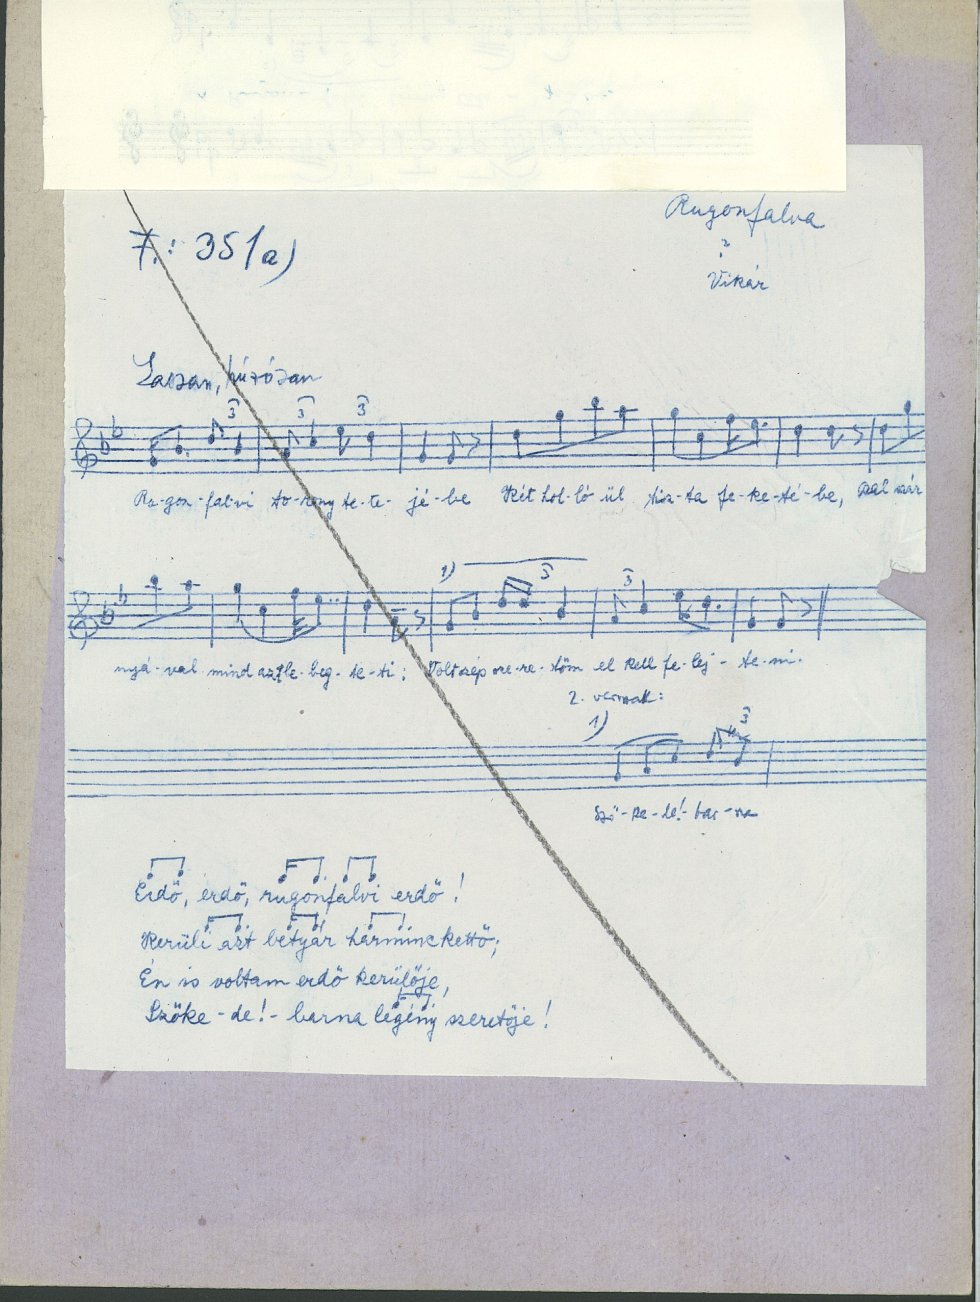 Rugonfalva
?
Vikár
F.: 351a)
Lassan, húzósan
3 3 3
Ru-gon-fal-vi to-rony te-te-jé-be Két hol-ló ül tisz-ta fe-ke-té-be, szár
1) 3 3
nyá-val mind azt le-beg-te-ti; Volt szép sze-re-tőm el kell fe-lej-te-ni.
2. versnek:
1) 3
Ző-ke-de!-bar-na
Erdő, erdő, rugonfalvi erdő!
Kerüli azt betyár harminckettő;
Én is voltam erdő kerülője,
Szőke-de!-barna legény szeretője!